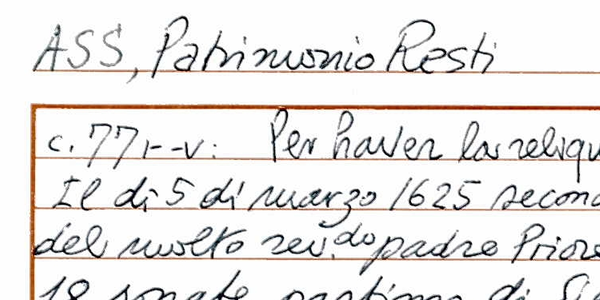 ASS, Patrimonio Resti
c. 77r-v: Per haver la reliqu
Il dì 5 di marzo 1625 second
del molto rev.do padre Priore
18 sonate partimo di